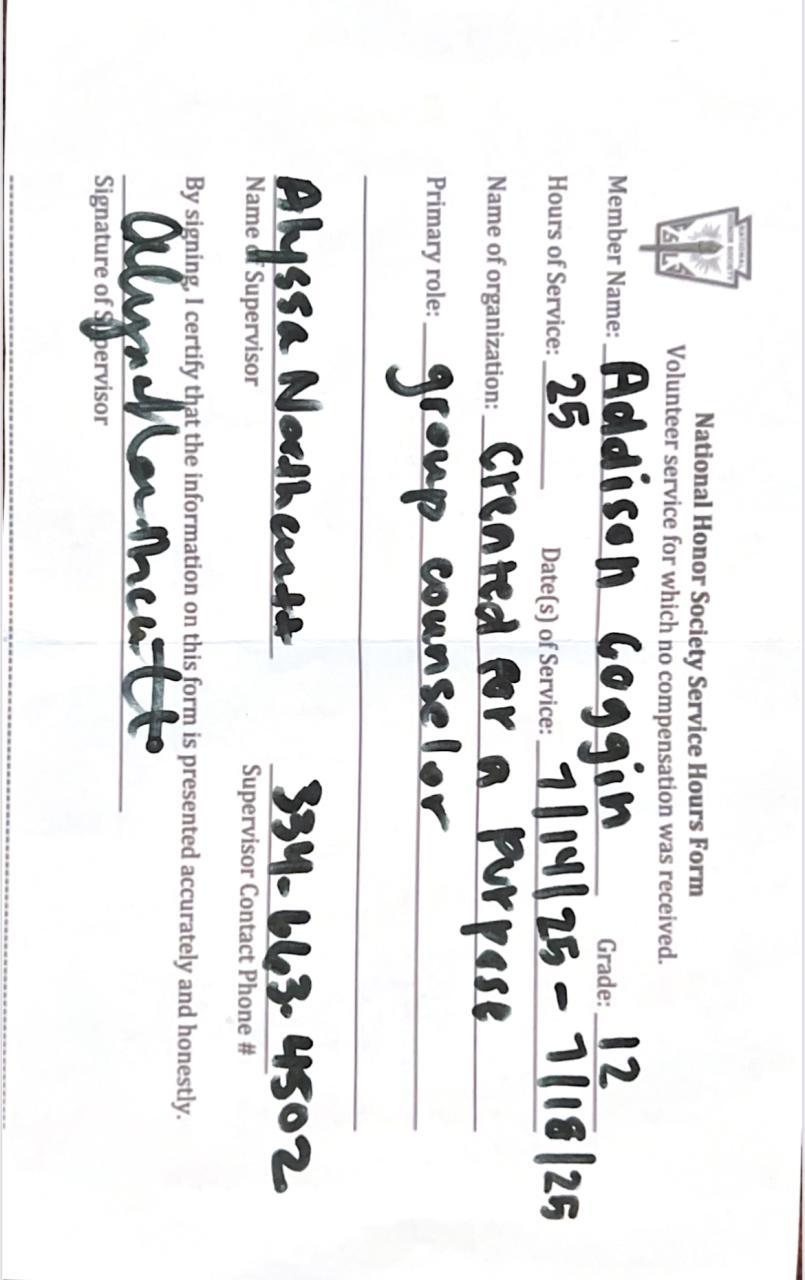 National Honor Society Service Hours Form
Volunteer service for which no compensation was received.
Member Name: Addison Coggin Grade: 12
Hours of Service: 25 Date(s) of Service: 7/14/25 - 7/18/25
Name of organization: Created for a Purpose
Primary role: group counselor
Alyssa Northcutt 334-663-4502
Name of Supervisor Supervisor Contact Phone #
By signing, I certify that the information on this form is presented accurately and honestly.
Alyssa Northcutt
Signature of Supervisor